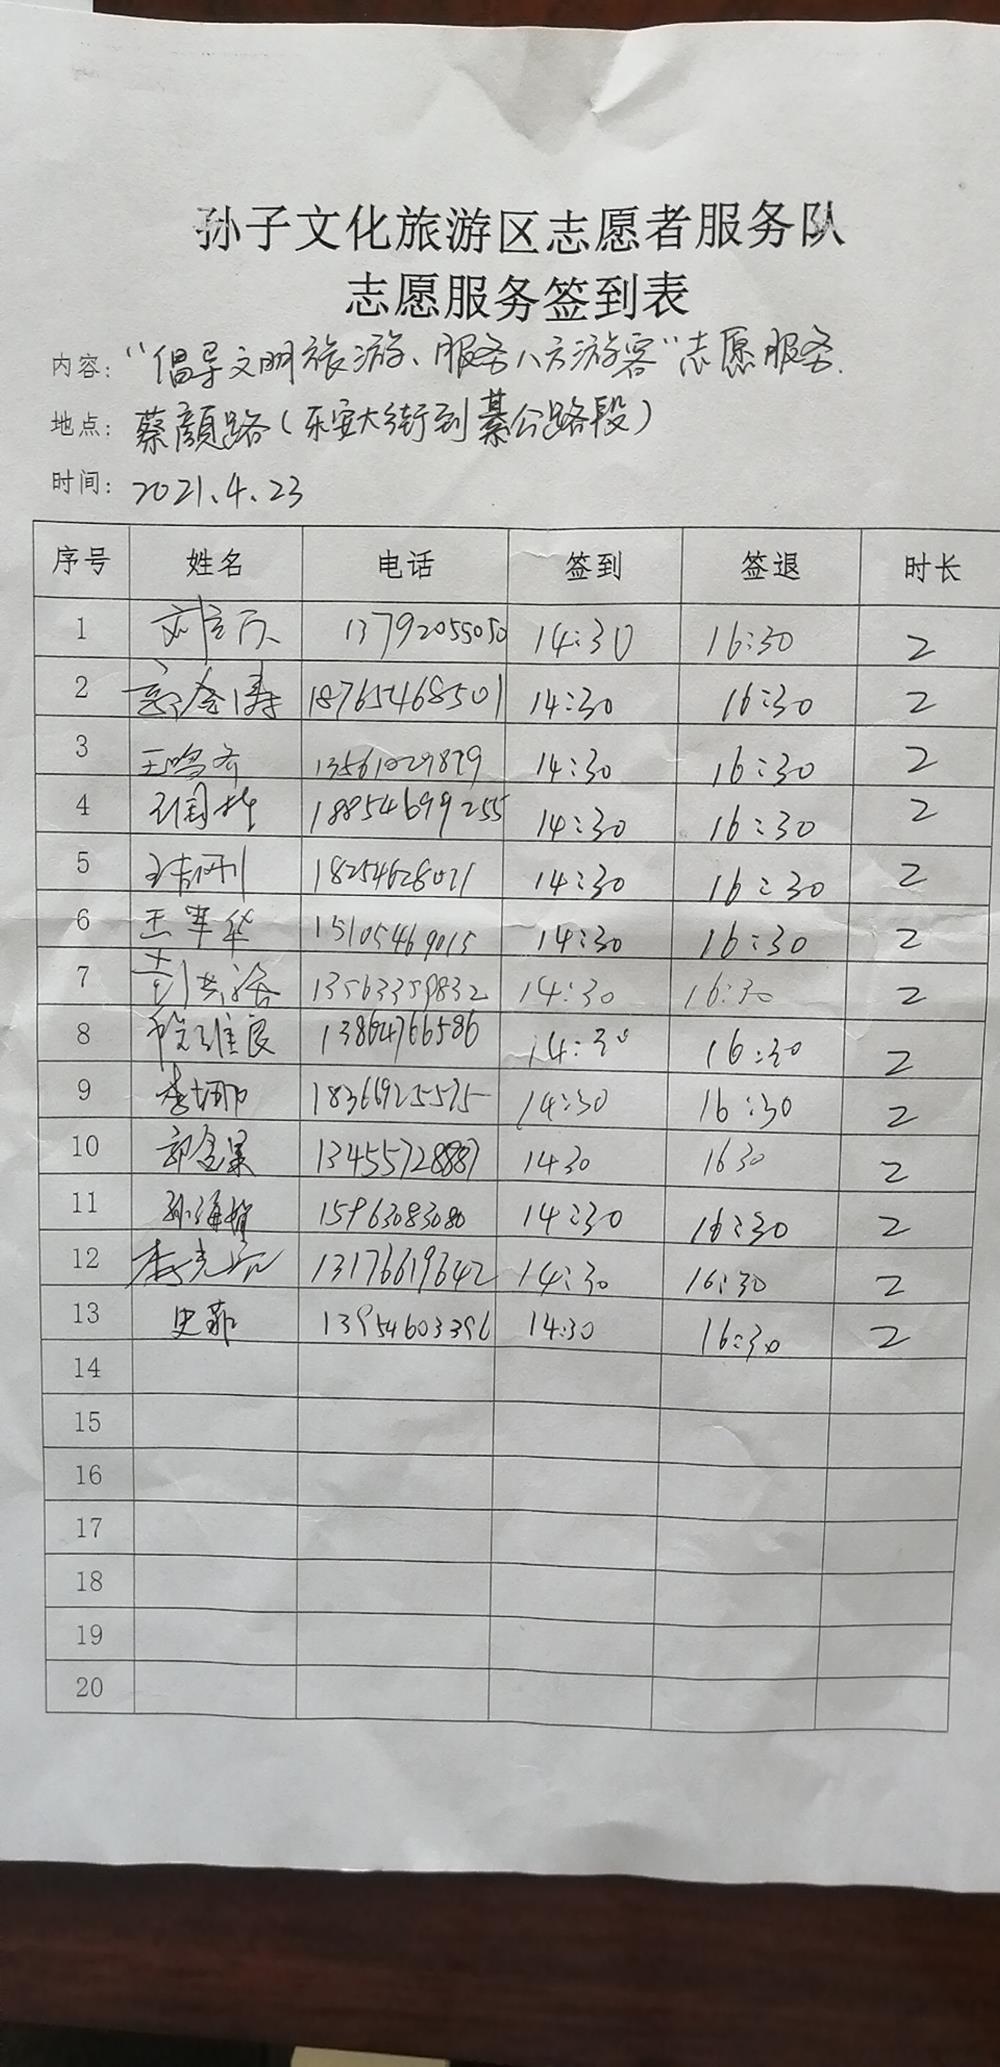 孙子文化旅游区志愿者服务队
志愿服务签到表
内容：“倡导文明旅游、服务八方游客”志愿服务.
地点：蔡颜路（乐安大街到綦公路段）
时间：2021.4.23
序号 姓名 电话 签到 签退 时长
1 13792055050 14:30 16:30 2
2 18765468501 14:30 16:30 2
3 王鸣 13561029879 14:30 16:30 2
4 18854699255 14:30 16:30 2
5 18254628071 14:30 16:30 2
6 王军华 15105469015 14:30 16:30 2
7 彭 13563359832 14:30 16:30 2
8 维良 13864766586 14:30 16:30 2
9 李娜 18366925575 14:30 16:30 2
10 郭金果 13455728887 1430 1630 2
11 孙海 15963083080 14:30 16:30 2
12 李克 13176619642 14:30 16:30 2
13 史菲 13954603396 14:30 16:30 2
14
15
16
17
18
19
20